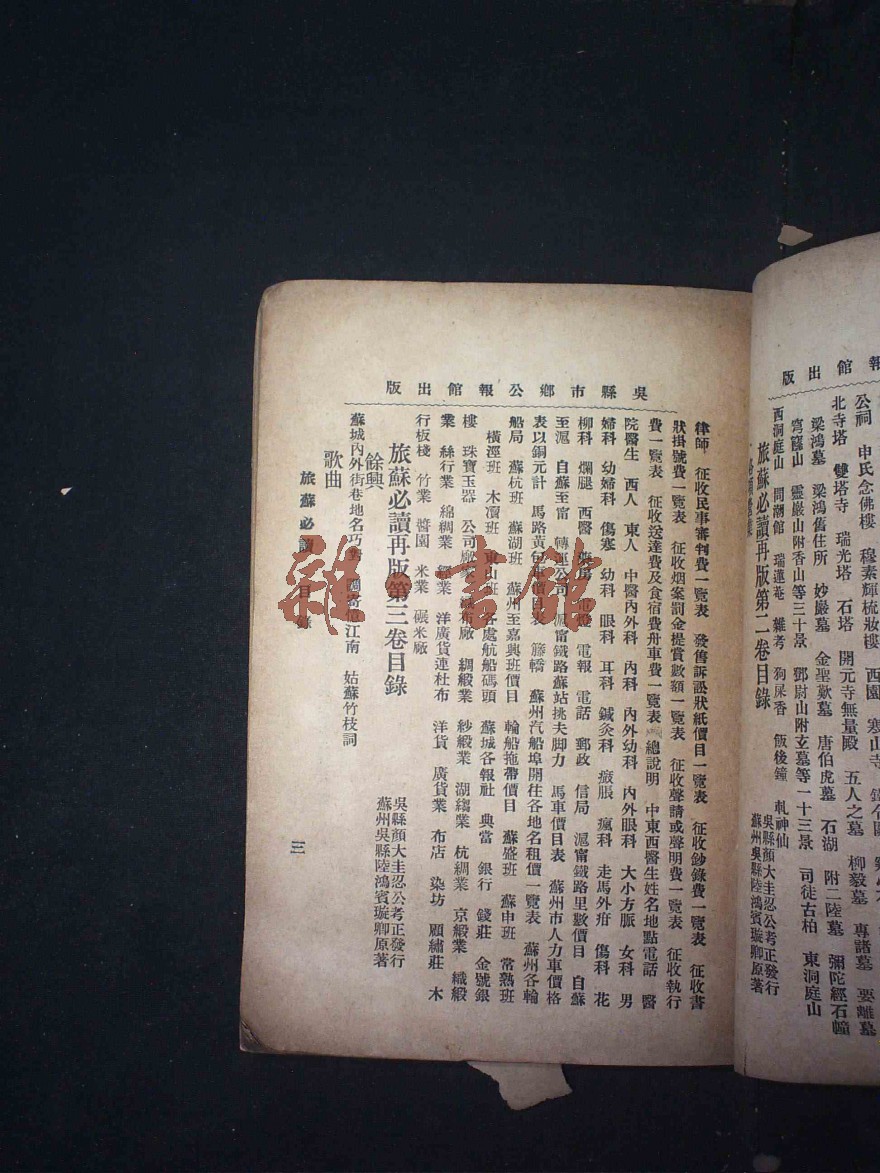 報館出版
公祠 申氏念佛樓 穆素輝梳妝樓 西園 寒山寺
北寺塔 雙塔寺 瑞光塔 石塔 開元寺無量殿 五人之墓 柳毅墓 專諸墓 要離墓
梁鴻墓 梁鴻舊住所 妙嚴墓 金聖歎墓 唐伯虎墓 石湖 附二陸墓 彌陀經石幢
穹窿山 靈巖山附香山等三十景 鄧尉山附玄墓等一十三景 司徒古柏 東洞庭山
西洞庭山 開潮館 瑞蓮菴 雜考 狗屎香 飯後鐘 軋神仙
旅蘇必讀再版第二卷目錄
吳縣顏大圭忍公考正發行
蘇州吳縣陸鴻賓璇卿原著
吳縣市鄉公報館出版
律師 征收民事審判費一覽表 發售訴訟狀紙價目一覽表 征收鈔錄費一覽表 征收書
狀掛號費一覽表 征收烟案罰金提賞數額一覽表 征收聲請或聲明費一覽表 征收執行
費一覽表 征收送達費及食宿費舟車費一覽表 總說明 中東西醫生姓名地點電話 醫
院醫生 西人 東人 中醫內外科 內科 內外幼科 內外眼科 大小方脈 女科 男
婦科 幼婦科 傷寒 幼科 眼科 耳科 鍼灸科 痧脹 瘋科 走馬外疳 傷科 花
柳科 爛腿 西醫 電報 電話 郵政 信局 滬甯鐵路里數價目 自蘇
至滬 自蘇至甯 轉運公司 滬甯鐵路蘇站挑夫脚力 馬車價目表 蘇州市人力車價格
表以銅元計 馬路黃包車價目表 籐轎 蘇州汽船埠開往各地名租價一覽表 蘇州各輪
船局 蘇杭班 蘇湖班 蘇州至嘉興班價目 輪船拖帶價目 蘇盛班 蘇申班 常熟班
橫涇班 木瀆班 東山班 各處航船碼頭 蘇城各報社 典當 銀行 錢莊 金號銀
樓 珠寶玉器 公司廠家 織布廠 綢緞業 紗緞業 湖縐業 杭綢業 京緞業 織緞
業 絲行業 綿綢業 經業 洋廣貨連杜布 洋貨 廣貨業 布店 染坊 顧繡莊 木
行板棧 竹業 醬園 米業 礱米廠
旅蘇必讀再版第三卷目錄
吳縣顏大圭忍公考正發行
蘇州吳縣陸鴻賓璇卿原著
餘興
蘇城內外街巷地名巧對 獨寄 江南 姑蘇竹枝詞
歌曲
旅蘇必讀 目錄 三
雜書館